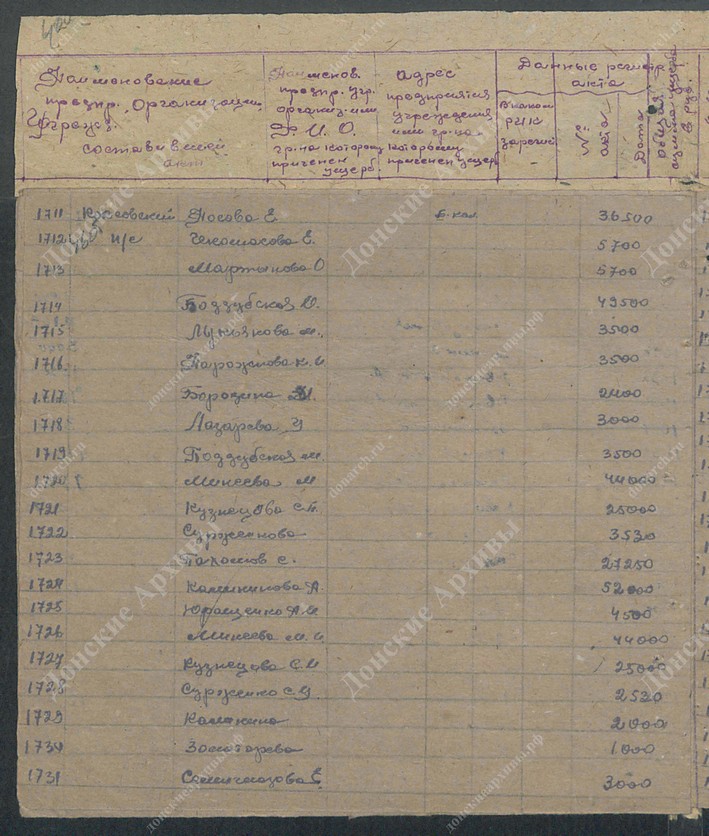 Наименование
предпр. Организации
Учрежд.
составившей
акт
Наименов.
предпр. учр.
организ. или
Ф И. О.
гр-на которому
причинен
ущерб
адрес
предприятия
учреждения
или гр-на
которому
причинен ущерб
Данные регистр
акта
В каком
РИК
зарегис
№
акта
Дата
общая
сумма ущерба
в руб.
1711 Носова Е 36500
1712 п/с 5700
1713 Мартынова О 5700
1714 Поддубская 49500
1715 3500
1716 3500
1717 Бородина 2400
1718 Лазарева 3000
1719 Поддубская м. 3500
1720 Минеева М 44000
1721 Кузнецова С.П. 25000
1722 3530
1723 27250
1724 Калиникова А 52000
1725 Ющенко 4500
1726 Минеева м. и 44000
1727 Кузнецова С.И 25000
1728 Сурженко С. 2530
1729 Калинина 2000
1730 Золотарева 1000
1731 Е 3000
Донские Архивы
donarch.ru
донскиеархивы.рф